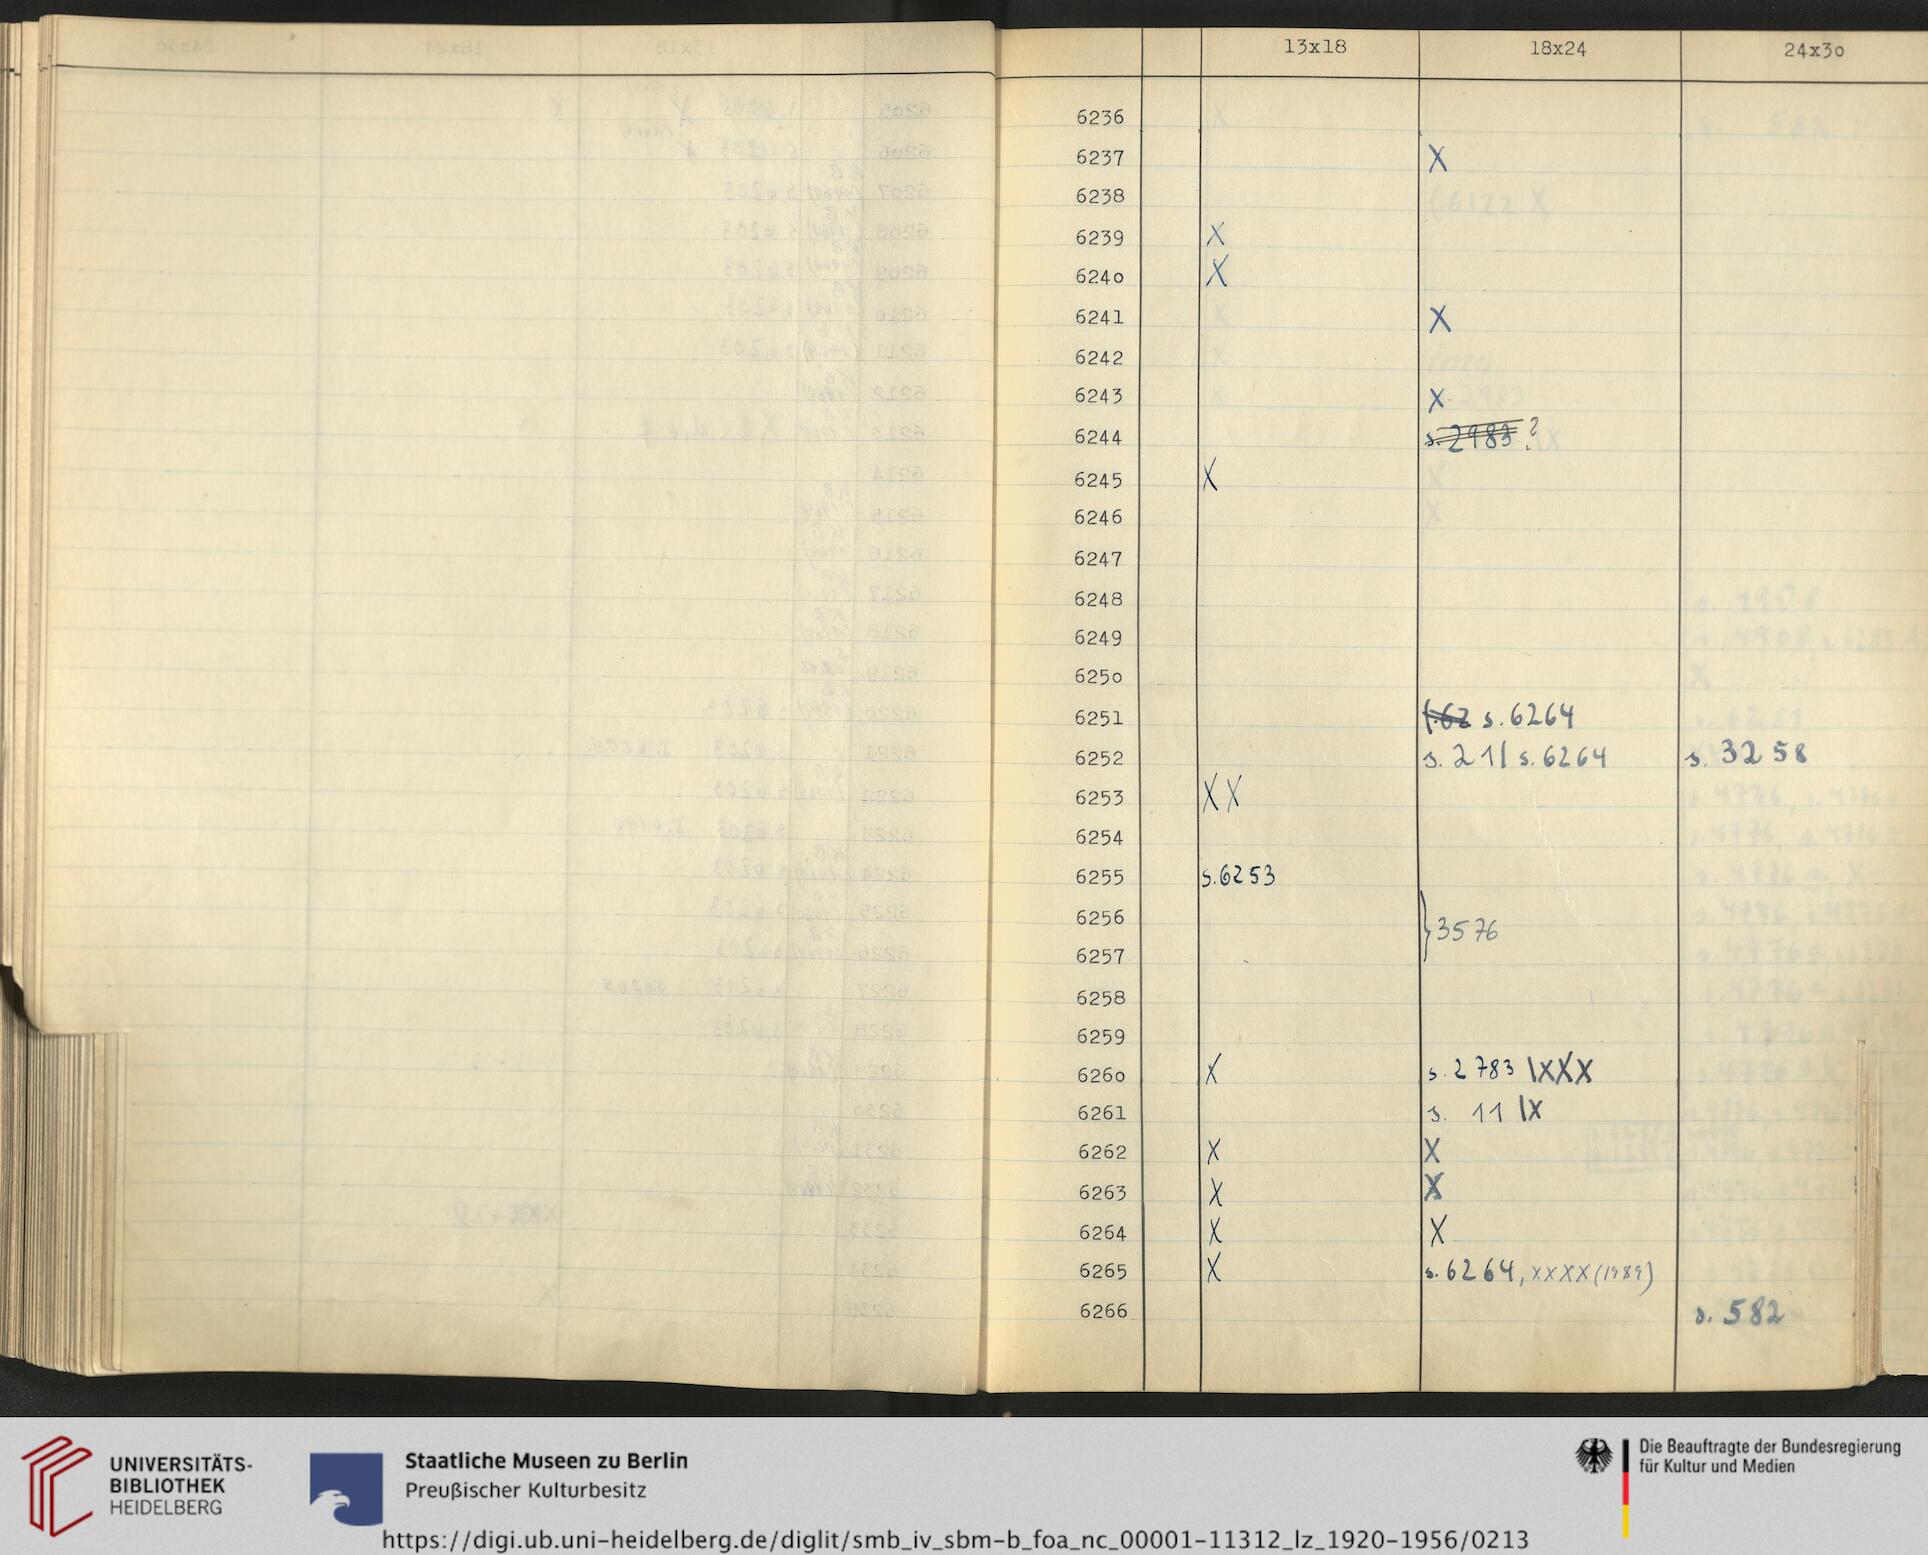 13x18 18x24 24x3o
6236
6237 X
6238
6239 X
624o X
6241 X
6242
6243 X
6244 s. 2983 ?
6245 X
6246
6247
6248
6249
625o
6251 s. 6264
6252 s. 21 | s. 6264 s. 3258
6253 XX
6254
6255 s. 6253
6256
} 3576
6257
6258
6259
626o X s. 2783 |XXX
6261 s. 11 |X
6262 X X
6263 X X
6264 X X
6265 X s. 6264, XXXX (1989)
6266 s. 582
UNIVERSITÄTS-
BIBLIOTHEK
HEIDELBERG
Staatliche Museen zu Berlin
Preußischer Kulturbesitz
Die Beauftragte der Bundesregierung
für Kultur und Medien
https://digi.ub.uni-heidelberg.de/diglit/smb_iv_sbm-b_foa_nc_00001-11312_lz_1920-1956/0213